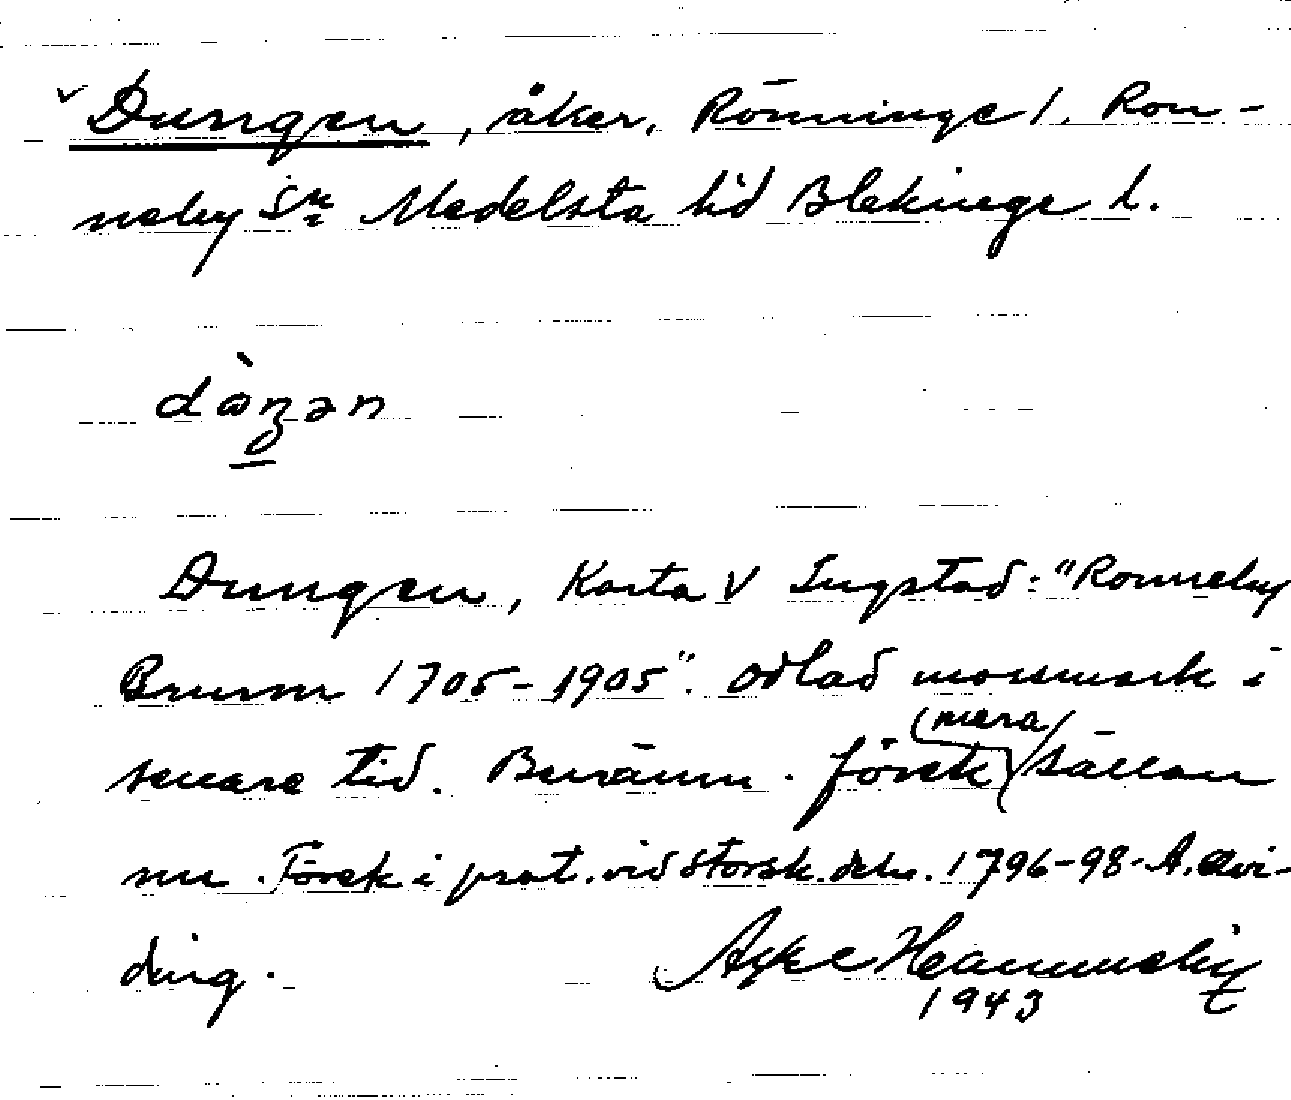 Dungen, åker, Rönninge 1. Ron-
neby sn Medelsta hd Blekinge l.
dàŋən
Dungen, Karta V Sugstad: "Ronneby
Brunn 1705-1905". Odlad mossmark i
senare tid. Benämn. förek (mera) sällan
nu. Förek i prot. vid storsk. deln. 1796-98.
ding.
Åke Hammelin
1943